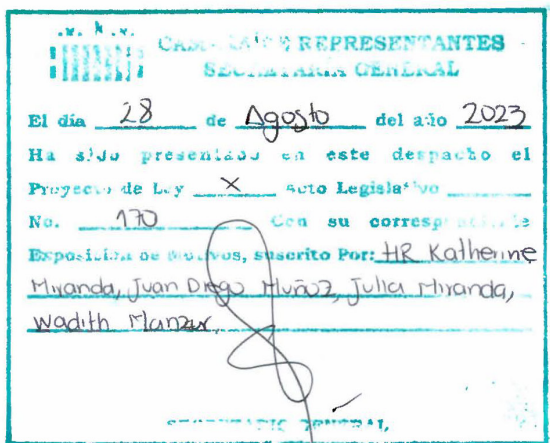 CAMARA DE REPRESENTANTES
SECRETARIA GENERAL
El día 28 de Agosto del año 2023
Ha sido presentado en este despacho el
Proyecto de Ley X Acto Legislativo
No. 170 Con su correspondiente
Exposición de Motivos, suscrito Por: HR Katherine
Miranda, Juan Diego Muñoz, Julia Miranda,
Wadith Manzur,
SECRETARIO GENERAL